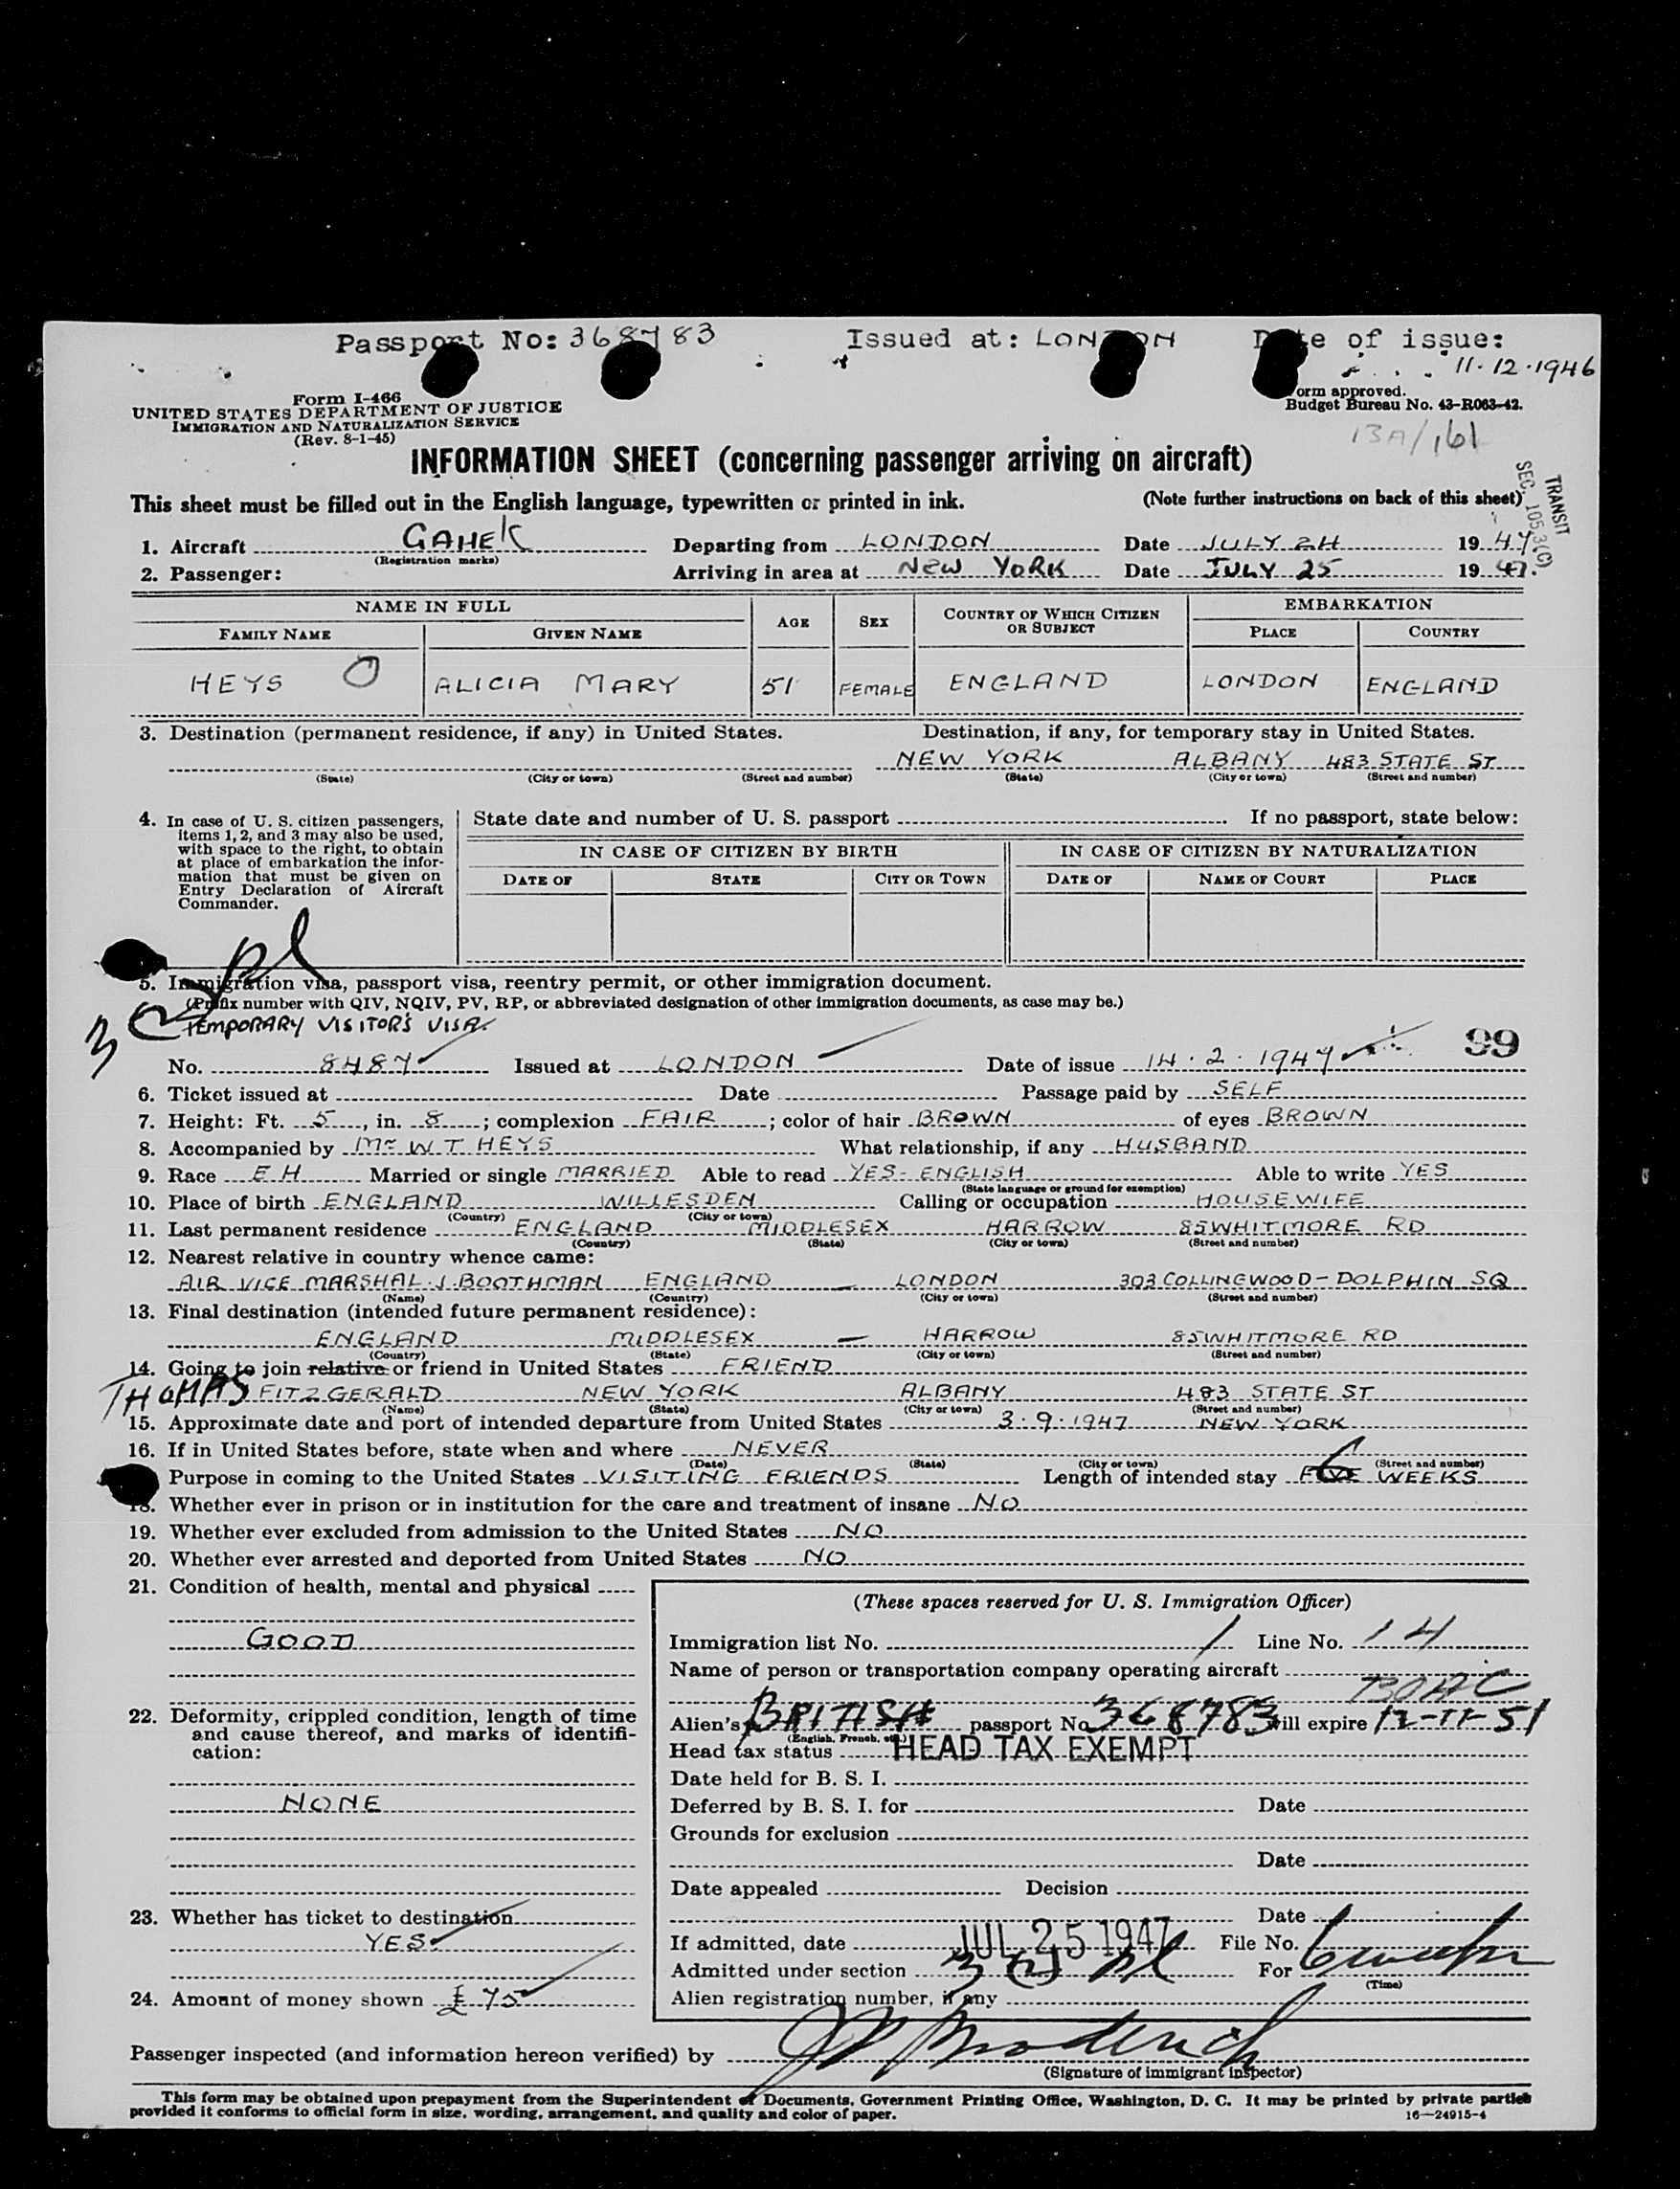 Passport No: 368783 Issued at: LONDON Date of issue:
11.12.1946
Form I-466
UNITED STATES DEPARTMENT OF JUSTICE
IMMIGRATION AND NATURALIZATION SERVICE
(Rev. 8-1-45)
Form approved.
Budget Bureau No. 43-R063-42.
13A/161
INFORMATION SHEET (concerning passenger arriving on aircraft)
TRANSIT
SEC. 1053(C)
This sheet must be filled out in the English language, typewritten or printed in ink. (Note further instructions on back of this sheet)
1. Aircraft GAHEK Departing from LONDON Date JULY 24 1947
(Registration marks)
2. Passenger: Arriving in area at NEW YORK Date JULY 25 1947.
NAME IN FULL AGE SEX COUNTRY OF WHICH CITIZEN OR SUBJECT EMBARKATION
FAMILY NAME GIVEN NAME PLACE COUNTRY
HEYS O ALICIA MARY 51 FEMALE ENGLAND LONDON ENGLAND
3. Destination (permanent residence, if any) in United States. Destination, if any, for temporary stay in United States.
NEW YORK ALBANY 483 STATE ST
(State) (City or town) (Street and number) (State) (City or town) (Street and number)
4. In case of U. S. citizen passengers, items 1, 2, and 3 may also be used, with space to the right, to obtain at place of embarkation the information that must be given on Entry Declaration of Aircraft Commander.
State date and number of U. S. passport If no passport, state below:
IN CASE OF CITIZEN BY BIRTH IN CASE OF CITIZEN BY NATURALIZATION
DATE OF STATE CITY OR TOWN DATE OF NAME OF COURT PLACE
5. Immigration visa, passport visa, reentry permit, or other immigration document.
(Prefix number with QIV, NQIV, PV, RP, or abbreviated designation of other immigration documents, as case may be.)
3(2)
TEMPORARY VISITOR'S VISA.
99
No. 8487 Issued at LONDON Date of issue 14.2.1947
6. Ticket issued at Date Passage paid by SELF
7. Height: Ft. 5, in. 8; complexion FAIR; color of hair BROWN of eyes BROWN
8. Accompanied by Mr W T HEYS What relationship, if any HUSBAND
9. Race EH Married or single MARRIED Able to read YES - ENGLISH Able to write YES
(State language or ground for exemption)
10. Place of birth ENGLAND WILLESDEN Calling or occupation HOUSEWIFE
(Country) (City or town)
11. Last permanent residence ENGLAND MIDDLESEX HARROW 85 WHITMORE RD
(Country) (State) (City or town) (Street and number)
12. Nearest relative in country whence came:
AIR VICE MARSHAL J. BOOTHMAN ENGLAND — LONDON 303 COLLINGWOOD - DOLPHIN SQ
(Name) (Country) (City or town) (Street and number)
13. Final destination (intended future permanent residence):
ENGLAND MIDDLESEX — HARROW 85 WHITMORE RD
(Country) (State) (City or town) (Street and number)
14. Going to join relative or friend in United States FRIEND
THOMAS FITZGERALD NEW YORK ALBANY 483 STATE ST
(Name) (State) (City or town) (Street and number)
15. Approximate date and port of intended departure from United States 3.9.1947 NEW YORK
16. If in United States before, state when and where NEVER
(Date) (State) (City or town) (Street and number)
Purpose in coming to the United States VISITING FRIENDS Length of intended stay 6 WEEKS
18. Whether ever in prison or in institution for the care and treatment of insane NO
19. Whether ever excluded from admission to the United States NO
20. Whether ever arrested and deported from United States NO
21. Condition of health, mental and physical
GOOD
22. Deformity, crippled condition, length of time and cause thereof, and marks of identification:
NONE
23. Whether has ticket to destination
YES
24. Amount of money shown £75
(These spaces reserved for U. S. Immigration Officer)
Immigration list No. 1 Line No. 14
Name of person or transportation company operating aircraft
BOAC
Alien's BRITISH passport No. 368783 will expire 12-11-51
(English, French, etc.)
Head tax status HEAD TAX EXEMPT
Date held for B. S. I.
Deferred by B. S. I. for Date
Grounds for exclusion
Date
Date appealed Decision
Date
If admitted, date JUL 25 1947 File No.
Admitted under section 3(2) For 6 months
(Time)
Alien registration number, if any
Passenger inspected (and information hereon verified) by
(Signature of immigrant inspector)
This form may be obtained upon prepayment from the Superintendent of Documents, Government Printing Office, Washington, D. C. It may be printed by private parties
provided it conforms to official form in size, wording, arrangement, and quality and color of paper. 16—24915-4